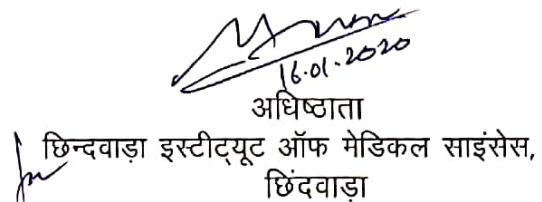 16.01.2020
अधिष्ठाता
छिन्दवाड़ा इस्टीट्यूट ऑफ मेडिकल साइंसेस,
छिंदवाड़ा